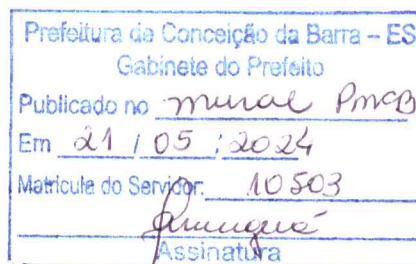 Prefeitura de Conceição da Barra – ES
Gabinete do Prefeito
Publicado no mural PMCB
Em 21 / 05 / 2024
Matrícula do Servidor: 10503
Assinatura